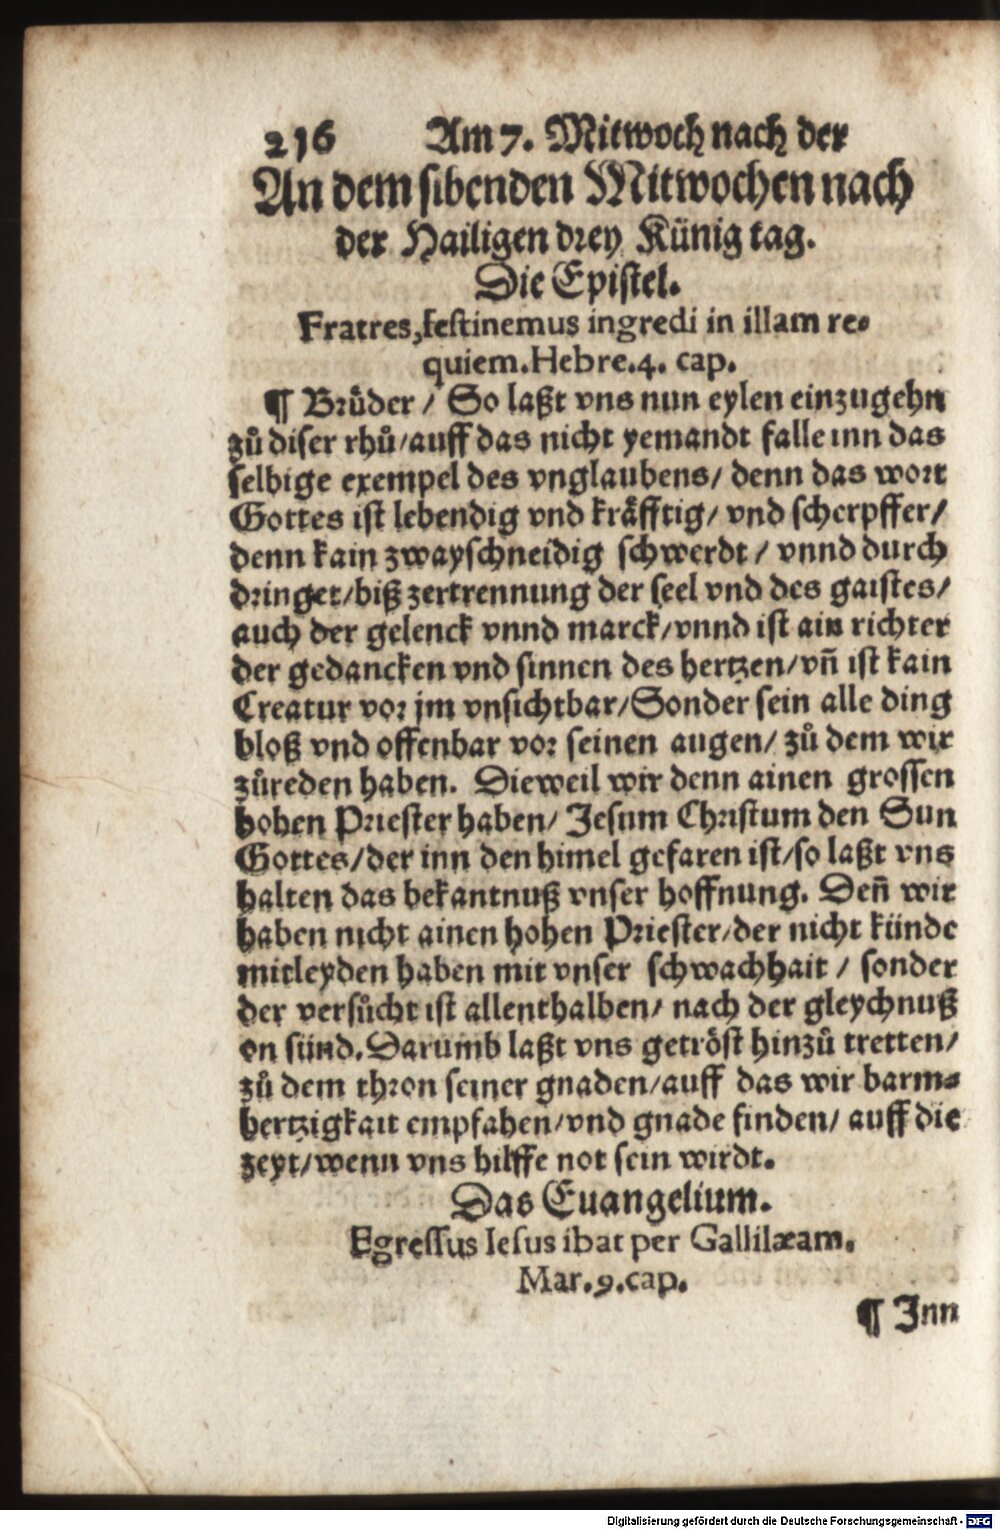 216 Am 7. Mitwoch nach der
An dem sibenden Mitwochen nach
der Hailigen drey Künig tag.
Die Epistel.
Fratres, festinemus ingredi in illam re⸗
quiem. Hebre. 4. cap.
¶ Bruͤder / So laßt vns nun eylen einzugehn
zuͦ diser rhuͦ / auff das nicht yemandt falle inn das
selbige exempel des vnglaubens / denn das wort
Gottes ist lebendig vnd kraͤfftig / vnd scherpffer /
denn kain zwayschneidig schwerdt / vnnd durch
dringet / biß zertrennung der seel vnd des gaistes /
auch der gelenck vnnd marck / vnnd ist ain richter
der gedancken vnd sinnen des hertzen / vñ ist kain
Creatur vor jm vnsichtbar / Sonder sein alle ding
bloß vnd offenbar vor seinen augen / zuͦ dem wir
zuͦreden haben. Dieweil wir denn ainen grossen
hohen Priester haben / Jesum Christum den Sun
Gottes / der inn den himel gefaren ist / so laßt vns
halten das bekantnuß vnser hoffnung. Deñ wir
haben nicht ainen hohen Priester / der nicht künde
mitleyden haben mit vnser schwachhait / sonder
der versuͦcht ist allenthalben / nach der gleychnuß
on sünd. Darumb laßt vns getroͤst hinzuͦ tretten /
zuͦ dem thron seiner gnaden / auff das wir barm⸗
hertzigkait empfahen / vnd gnade finden / auff die
zeyt / wenn vns hilffe not sein wirdt.
Das Euangelium.
Egressus Iesus ibat per Gallilæam.
Mar. 9. cap.
¶ Inn
Digitalisierung gefördert durch die Deutsche Forschungsgemeinschaft - DFG